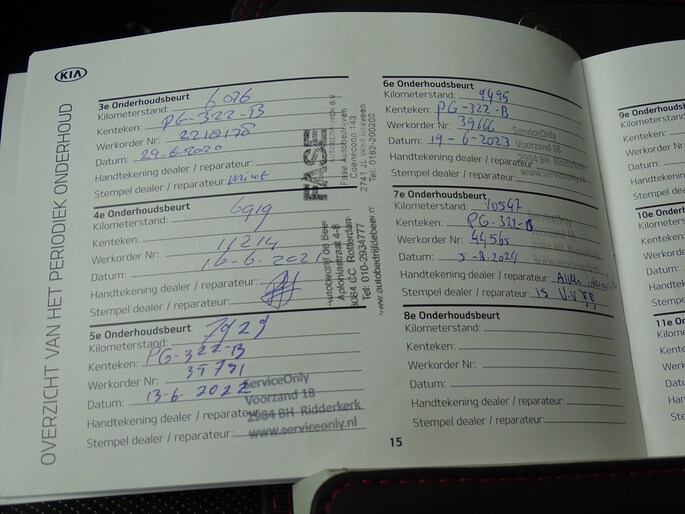 KIA
OVERZICHT VAN HET PERIODIEK ONDERHOUD
3e Onderhoudsbeurt
Kilometerstand: 6076
Kenteken: PG-322-B
Werkorder Nr:
Datum: 29-6-2020
Handtekening dealer / reparateur:
Stempel dealer / reparateur:
FASE
Fase Autobedrijven
Coenecoop 143
2741 JL
Tel: 0182-200202
4e Onderhoudsbeurt
Kilometerstand: 6919
Kenteken:
Werkorder Nr: 11214
Datum: 16-6-2021
Handtekening dealer / reparateur:
Stempel dealer / reparateur:
Autobedrijf de Beer
Aploniastraat 4-8
3084 CC Rotterdam
Tel: 010-2934777
www.autobedrijfdebeer.nl
5e Onderhoudsbeurt
Kilometerstand: 7929
Kenteken: PG-322-B
Werkorder Nr:
Datum: 13-6-2022
Handtekening dealer / reparateur:
Stempel dealer / reparateur:
ServiceOnly
Voorzand 18
2984 BH Ridderkerk
www.serviceonly.nl
6e Onderhoudsbeurt
Kilometerstand: 9495
Kenteken: PG-322-B
Werkorder Nr: 39666
Datum: 19-6-2023
Handtekening dealer / reparateur:
Stempel dealer / reparateur:
ServiceOnly
Voorzand 18
2984 BH Ridderkerk
7e Onderhoudsbeurt
Kilometerstand: 10542
Kenteken: PG-322-B
Werkorder Nr: 44565
Datum: 5-8-2024
Handtekening dealer / reparateur:
Stempel dealer / reparateur:
8e Onderhoudsbeurt
Kilometerstand:
Kenteken:
Werkorder Nr:
Datum:
Handtekening dealer / reparateur:
Stempel dealer / reparateur:
15
9e Onderhoudsb
Kilometerstand
Kenteken:
Werkorder Nr:
Datum:
Handtekening
Stempel dea
10e Onder
Kilometers
Kenteken:
Werkorde
Datum:
Handtek
Stempel
11e On
Kilom
Kent